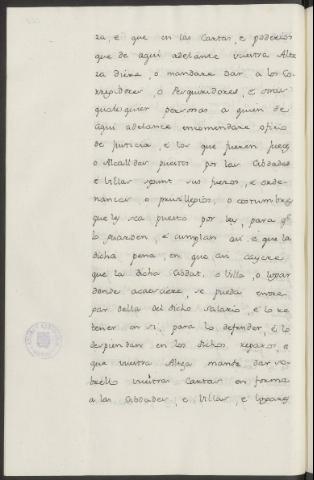 za, é que en las Cartas, e poderíos
que de aqui adelante vuestra Alte
za diere, o mandare dar a los Co-
rregidores, o Pesquiridores, é otras
qualesquier personas a quien de
aqui adelante encomendare oficio
de justicia, é los que fueren jueces
o Alcalldes puestos por las Cibdades
é Villas segunt sus fueros, e orde-
nanzas o previllegios, o costumbres
que ley sea puesto por ley, para qe
lo guarden, é cumplan asi é que la
dicha pena, en que asi cayere
que la dicha Cibdat, o Villa, o logar
donde acaesciere, se pueda entre-
gar della del dicho salario, é lo re-
tener en si para lo defender, é lo
despendan en los dichos reparos, e
que vuestra Alteza mande dar so-
brello vuestras Cartas en forma
a las Cibdades, e Villas, é logares